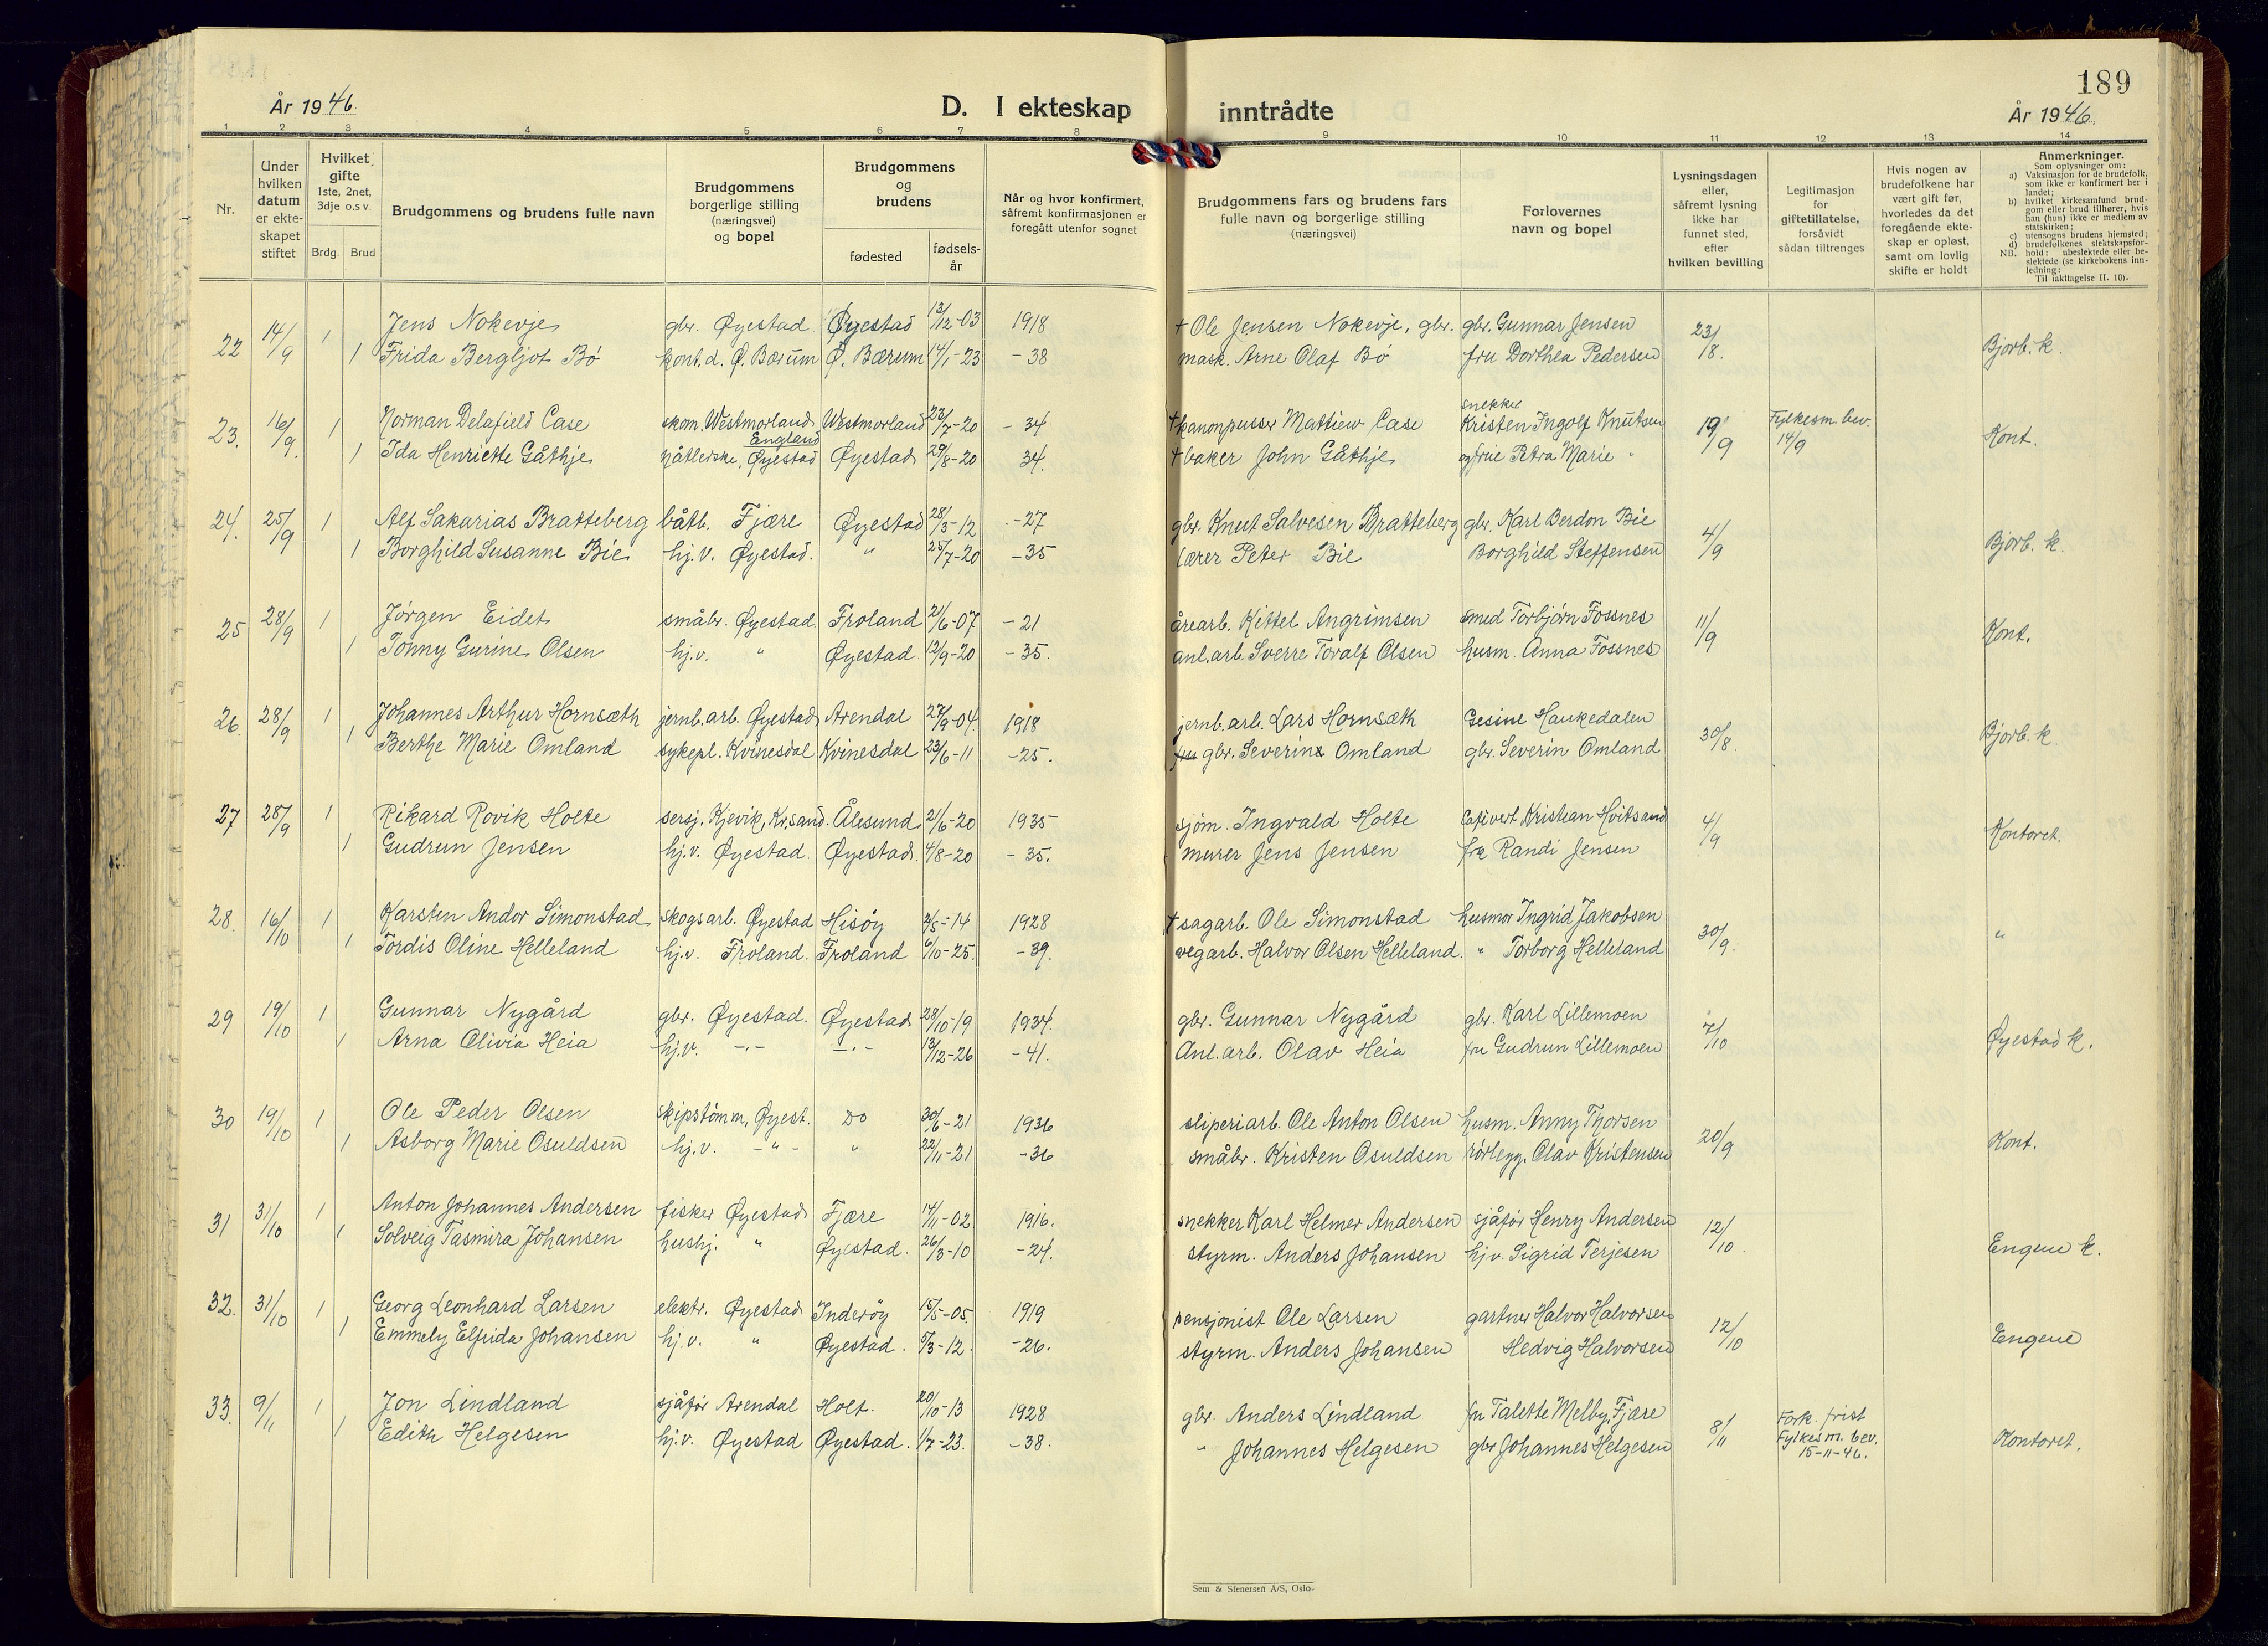 189
År 1946.
D. I ekteskap inntrådte
År 1946.
1 2 3 4 5 6 7 8 9 10 11 12 13 14
Nr.
Under hvilken datum er ekteskapet stiftet
Hvilket gifte 1ste, 2net, 3dje o.s v.
Brdg. Brud
Brudgommens og brudens fulle navn
Brudgommens borgerlige stilling (næringsvei) og bopel
Brudgommens og brudens
fødested
fødsels-år
Når og hvor konfirmert, såfremt konfirmasjonen er foregått utenfor sognet
Brudgommens fars og brudens fars fulle navn og borgerlige stilling (næringsvei)
Forlovernes navn og bopel
Lysningsdagen eller, såfremt lysning ikke har funnet sted, efter hvilken bevilling
Legitimasjon for giftetillatelse, forsåvidt sådan tiltrenges
Hvis nogen av brudefolkene har vært gift før, hvorledes da det foregående ekteskap er opløst, samt om lovlig skifte er holdt
Anmerkninger.
Som oplysninger om:
a) Vaksinasjon for de brudefolk, som ikke er konfirmert her i landet;
b) hvilket kirkesamfund brudgom eller brud tilhører, hvis han (hun) ikke er medlem av statskirken;
c) utensogns brudens hjemsted;
d) brudefolkenes slektskapsforhold: ubeslektede eller beslektede (se kirkebokens innledning;
NB. Til iakttagelse II. 10).
22 14/9 1 Jens Nokevje gbr. Øyestad Øyestad 13/12-03 1918 † Ole Jensen Nokevje, gbr. gbr. Gunnar Jensen 23/8. Bjorb. k.
1 Frida Bergljot Bö kont.d. Ø. Bærum Ø. Bærum 14/1-23 -38 mask. Arne Olaf Bö fru Dorthea Pedersen
23. 16/9. 1 Norman Delafield Case skom. Westmorland England Westmorland 23/7-20 -34 † kanonpusser Mattiew Case snekker Kristen Ingolf Knutsen 19/9 Fylkesm. bev. 14/9 Kont.
1 Ida Henriette Gåthje nåtlerske, Øyestad Øyestad 29/8-20 34. † baker John Gåthje og frue Petra Marie "
24. 25/9 1 Alf Sakarias Bratteberg båtb. Fjære Øyestad 28/3-12 -27 gbr. Knut Salvesen Bratteberg gbr. Karl Berdon Bie 4/9 Bjorb. k.
1 Borghild Susanne Bie hj.v. Øyestad. " 25/7-20 -35 lærer Peter Bie Borghild Steffensen
25 28/9 1 Jörgen Eidet småbr. Øyestad. Froland 21/6-07 -21 årearb. Kittel Angrimsen smed Torbjörn Fossnes 11/9 Kont.
1 Tonny Gurine Olsen hj.v. " Øyestad. 12/9-20 -35. anl.arb. Sverre Toralf Olsen husm. Anna Fossnes
26. 28/9 1 Johannes Arthur Hornsæth jernb.arb. Øyestad Arendal 27/9-04. 1918 jernb.arb. Lars Hornsæth Gesine Haukedalen 30/8. Bjorb. k.
1 Berthe Marie Omland sykepl. Kvinesdal Kvinesdal 23/6-11 -25. gbr. Severin Omland gbr. Severin Omland
27 28/9 1 Rikard Rovik Holte sersj. Kjevik, Kr.sand. Ålesund 21/6-20 1935 sjöm. Ingvald Holte Kristian Hvitsand 4/9 Kontoret.
1 Gudrun Jensen hj.v. Øyestad. Øyestad. 4/8-20 -35. murer Jens Jensen frk Randi Jensen
28. 16/10 1 Karsten Andor Simonstad skogsarb. Øyestad Hisöy 2/5-14 1928 † sagarb. Ole Simonstad husmor Ingrid Jakobsen 30/9. "
1 Tordis Oline Helleland hj.v. Froland. Froland 6/10-25. -39. vegarb. Halvor Olsen Helleland. " Torborg Helleland
29 19/10 1 Gunnar Nygård gbr. Øyestad. Øyestad 28/10-19 1934. gbr. Gunnar Nygård gbr. Karl Lillemoen 7/10 Øyestad k.
1 Arna Olivia Heia hj.v. -"- -"- 13/12-26 -41. Anl.arb. Olav Heia fru Gudrun Lillemoen
30 19/10 1 Ole Peder Olsen skipstömm. Øyest. Do 30/6-21 1936 sliperiarb. Ole Anton Olsen husm. Anny Thorsen 20/9 Kont.
1 Asborg Marie Osuldsen hj.v. -"- " 22/11-21 -36 småbr. Kristen Osuldsen rörlegg. Olav Kristensen
31 31/10 1 Anton Johannes Andersen fisker Øyestad Fjære 14/11-02 1916. snekker Karl Helmer Andersen sjåför Henry Andersen 12/10. Engene k.
1 Solveig Tasmira Johansen hushj. " Øyestad. 26/3-10 -24. styrm. Anders Johansen hj.v. Sigrid Terjesen
32. 31/10 1 Georg Leonhard Larsen elektr. Øyestad Inderöy 15/5-05. 1919 pensjonist Ole Larsen gartner Halvor Halvorsen 12/10 Engene
1 Emmely Elfrida Johansen hj.v. " Øyestad. 5/3-12. -26. styrm. Anders Johansen Hedvig Halvorsen
33. 9/11 1 Jon Lindland sjåför Arendal Holt. 20/10-13 1928 gbr. Anders Lindland fru Talette Melby, Fjære 8/11 Fork. frist Fylkesm. bev. 15-11-46. Kontoret.
1 Edith Helgesen hj.v. Øyestad Øyestad. 1/7-23. -38. " Johannes Helgesen gbr Johannes Helgesen
Sem & Stenersen A/S, Oslo.